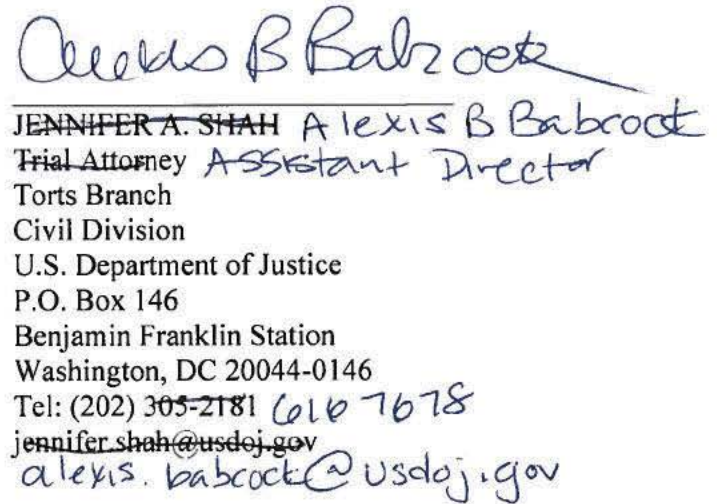 Alexis B Babcock
JENNIFER A. SHAH Alexis B Babcock
Trial Attorney Assistant Director
Torts Branch
Civil Division
U.S. Department of Justice
P.O. Box 146
Benjamin Franklin Station
Washington, DC 20044-0146
Tel: (202) 305-2181 616 7678
jennifer.shah@usdoj.gov
alexis.babcock@usdoj.gov